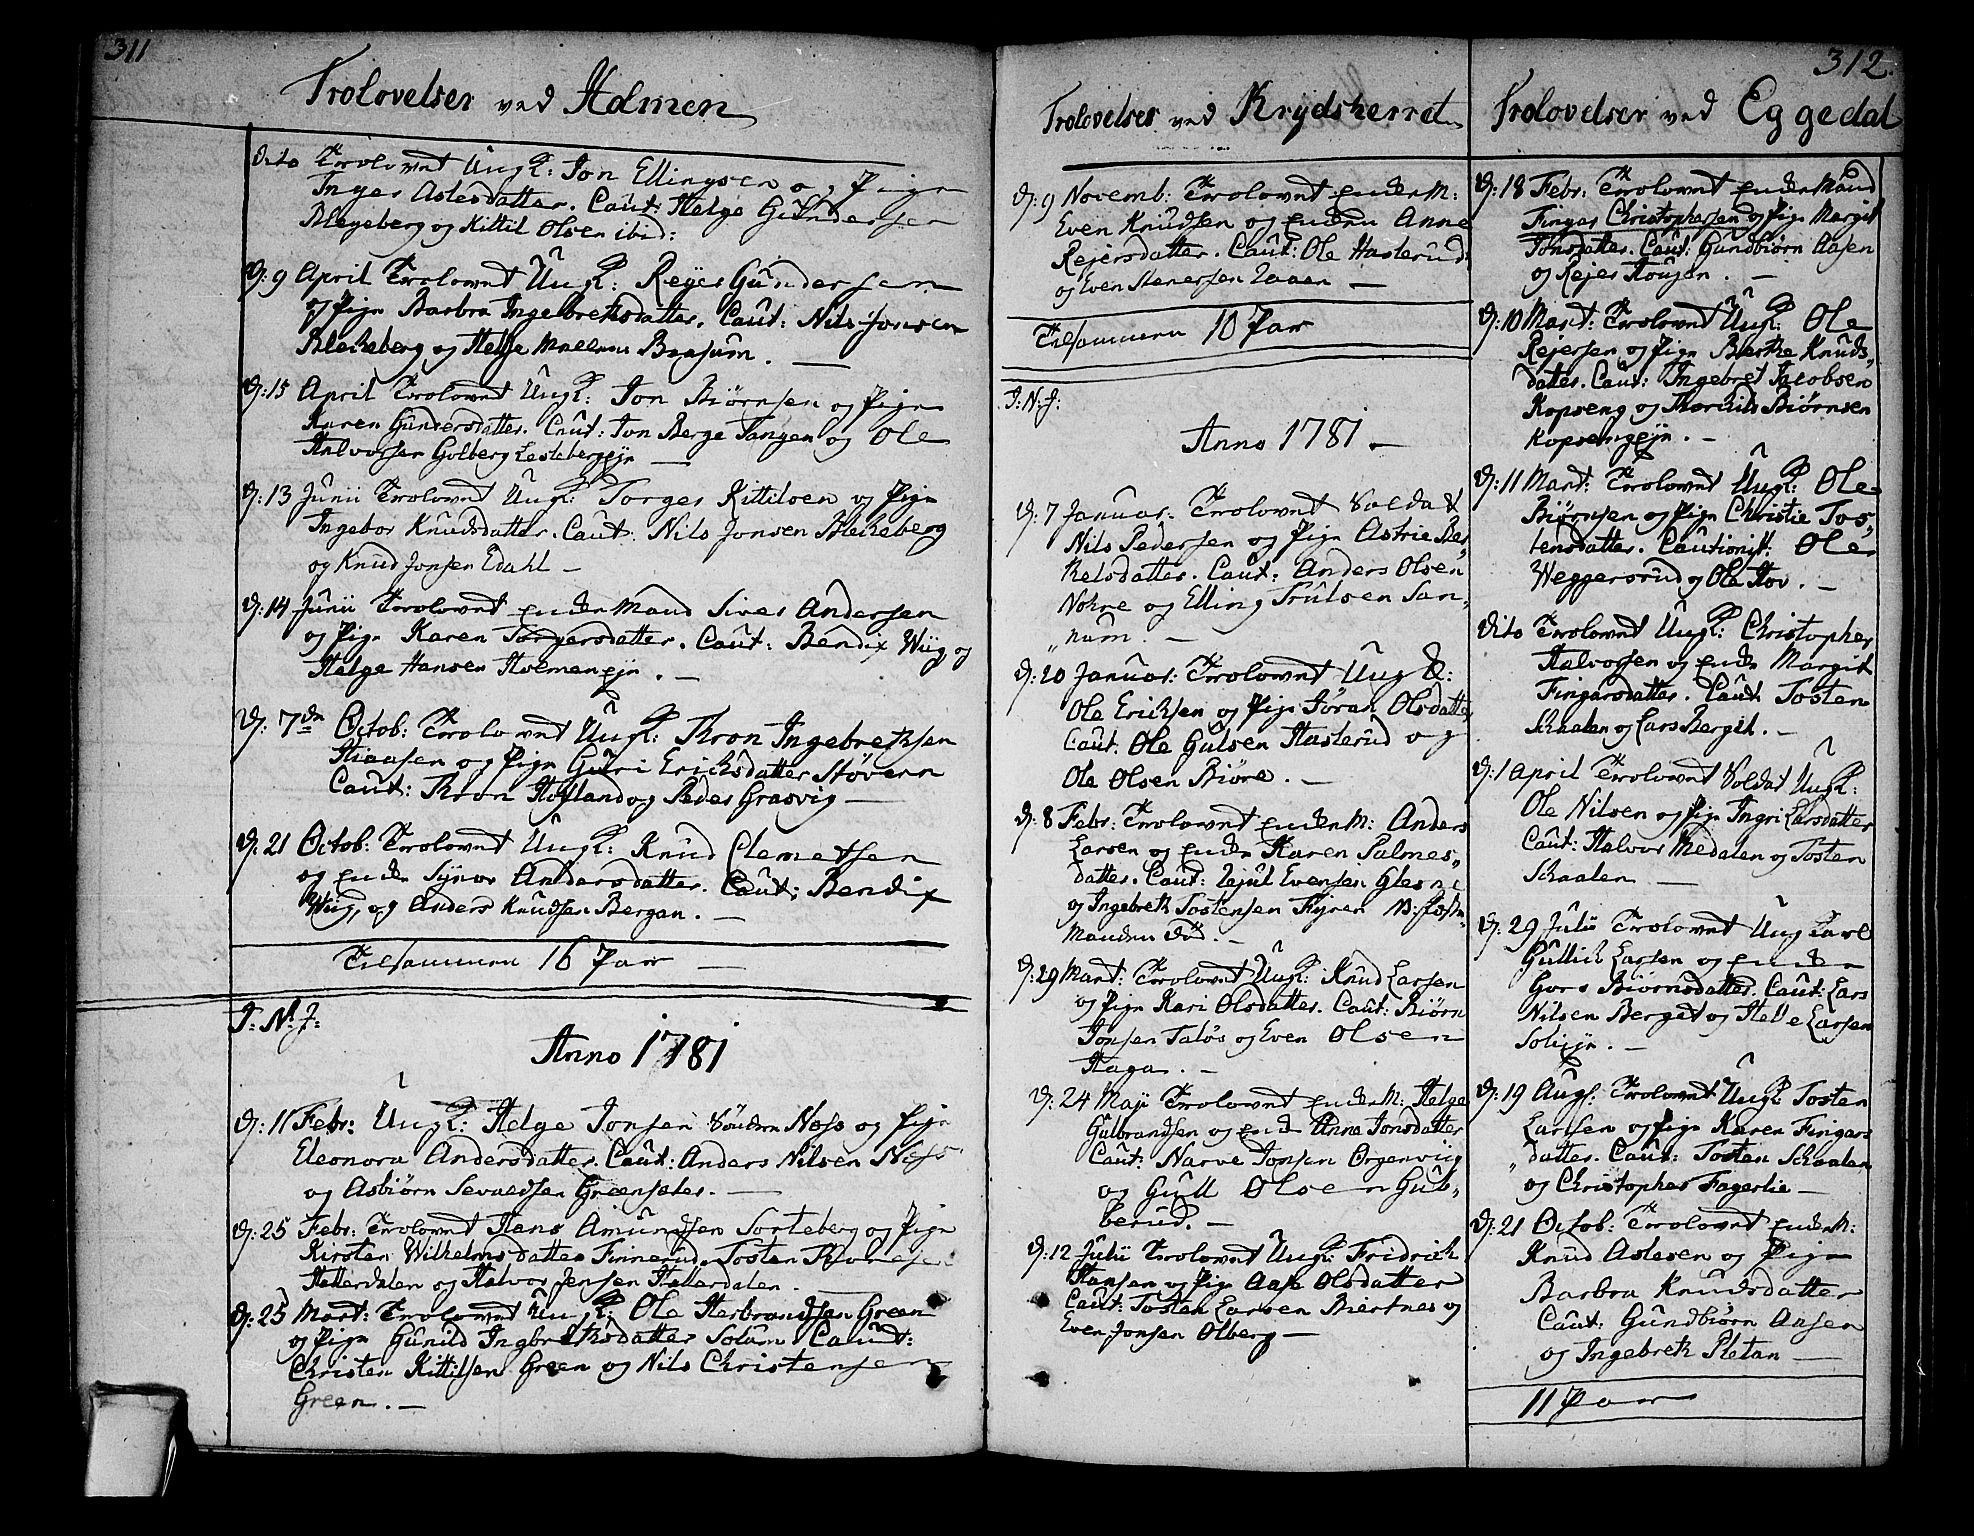 311
Trolovelser ved Holmen
Dito Trolovet Ungk: Jon Ellingsen og Pige
Inger Aslesdatter. Caut: Helge Gundersen
Blegeberg og Kittil Olsen ibid:
D: 9 April Trolovet Ungk: Reyer Gundersen
og Pige Barbra Ingebretsdatter. Caut: Nils Jonsen
Blekeberg og Helge BraSum.
D: 15 April Trolovet Ungk: Jon Biørnsen og Pige
Karen Gundersdatter. Caut: Jon Berge Tangen og Ole
Halvorsen Golberg Lesteberg
D: 13 Junii Trolovet Ungk: Torger Kittilsen og Pige
Ingebor Knudsdatter. Caut: Nils Jonsen Blekeberg
og Knud Jonsen Edahl –
D: 14 Junii Trolovet Enke Mand Siver Andersen
og Pige Karen Torgersdatter. Caut: Bendix Wiig og
Helge Hansen Holmen
D: 7de Octob: Trolovet Ungk: Thron Ingebrethsen
Hiaasen og Pige Guri Ericksdatter Støveren
Caut: Thron Hofland og Peder Grasvig –
D: 21 Octob: Trolovet Ungk: Knud Clemetsen
og Enke Synor Andersdatter. Caut: Bendix
Wiig, og Anders Knudsen Bergan. –
Tilsammen 16 Par –
I: N: J:
Anno 1781
D: 11 Febr: Ungk: Helge Jonsen Søndre Næss og Pige
Eleonora Andersdatter. Caut: Anders Nilsen Næss
og Asbiørn Sevaldsen Grensæter. –
D: 25 Febr: Trolovet Hans Amundsen Sorteberg og Pige
Kirsten Wilhelmsdatter Finnerud. Tosten
Hatterdalen og Halvor Jensen Hatterdalen
D: 25 Mart: Trolovet Ungk: Ole Herbrandsen Green
og Pige Gunild Ingbrethsdatter Solum Caut:
Christen Kittilsen Green og Nils Christensen
Green. –
Trolovelser ved Krydsherret
D: 9 Novemb: Trolovet Enke M:
Even Knudsen og Enken Anne
Rejersdatter. Caut: Ole Hasterud
og Even Stenersen Laaen –
Tilsammen 10 Par
I: N: J:
Anno 1781 –
D: 7 Januar: Trolovet Soldat
Nils Pedersen og Pige Astrie Ber„
thelsdatter. Caut: Anders Olsen
Nokre og Elling Trulsen San„
„num. –
D: 20 Januar: Trolovet Ungk:
Ole Ericksen og Pige Jøran Olsdatter
Caut. Ole Gulsen Hasterud og
Ole Olsen Biøre. –
D: 8 Febr: Trolovet Enke M: Anders
Larsen og Enke Karen Salmes„
datter. Caut: Evensen Glesne
og Ingebreth Tostensen Fyren
Manden død. –
D: 29 Mart: Trolovet Ungk: Knud Larsen
og Pige Kari Olsdatter. Caut: Biørn
Jonsen Taløs og Even Olsen
Haga. –
D: 24 Maji Trolovet Enke M: Helge
Gulbrandsen og Enke Anna Jonsdatter
Caut: Narve Jonsen Ørgenviig
og Gull Olsen Gub„
berud. –
D: 12 Julii Trolovet Ungk: Fridrich
Hansen og Pige Aase Olsdatter
Caut: Tosten Larsen Biertnes og
Even Jonsen Olberg –
312.
Trolovelser ved Eggedal
D: 18 Febr: Trolovet Enke Mand
Fingar Christophersen og Pige Margit
Jonsdatter. Caut: Gundbiørn Aasen
og Rejer Hougen. –
D: 10 Mart: Trolovet Ungk: Ole
Rejersen og Pige Berthe Knuds„
datter. Caut: Ingebret Jacobsen
Kopseng og Thorkild Biørnsen
Kopseng
D: 11 Mart: Trolovet Ungk: Ole
Biørnsen og Pige Christie Tos„
tensdatter. Cautionist: Ole
Weggersrud og Ole Hov. –
Dito Trolovet Ungk: Christopher
Halvorsen og Enke Margit
Fingarsdatter. Caut Tosten
Skaalen og Lars Berget. –
D: 1 April Trolovet Soldat Ungk:
Ole Nilsen og Pige Ingri Larsdatter
Caut: Halvor Medalen og Tosten
Skaalen –
D: 29 Julii Trolovet Ung Karl
Gullich Larsen og Enke
Gorø Biørnsdatter. Caut: Lars
Nilsen Berget og Helle Larsen
D: 19 Augs: Trolovet Ungk Tosten
Larsen og Pige Karen Fingars
„datter. Caut: Tosten Skaalen
og Christopher Fagerlie –
D: 21 Octob: Trolovet Enke M:
Knud Aslesen og Pige
Barbra Knudsdatter
Caut: Gundbiørn Aasen
og Ingebreth Pletan –
11 Par